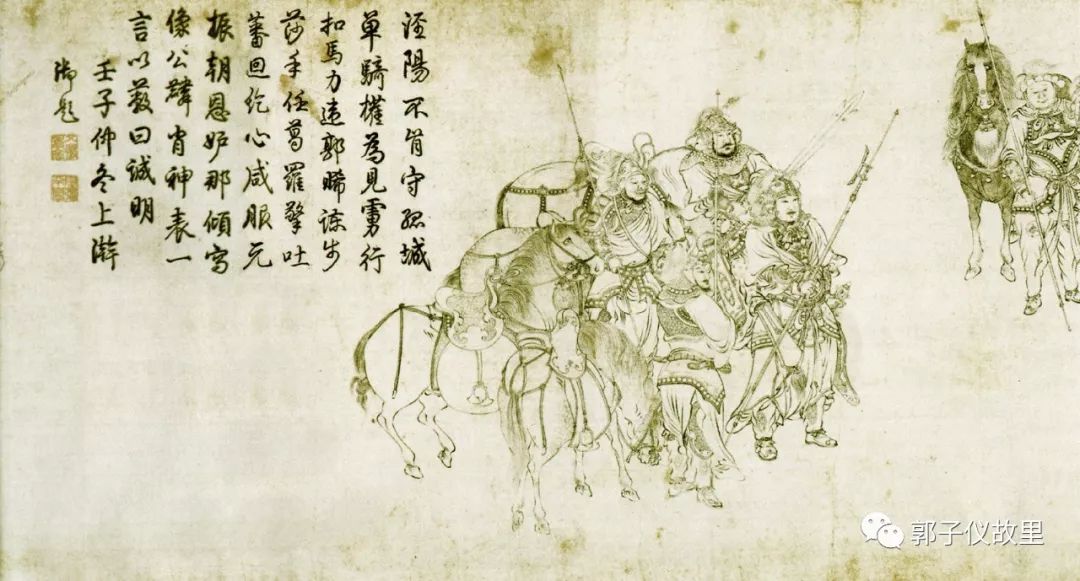 涇陽不肯守孤城
單騎權為見虜行
扣馬力違郭晞諫步
莎手任葛羅擎吐
蕃回紇心咸服元
振朝恩妒那傾寫
像公麟肖神表一
言以蔽曰誠明
壬子仲冬上澣
御題
郭子仪故里